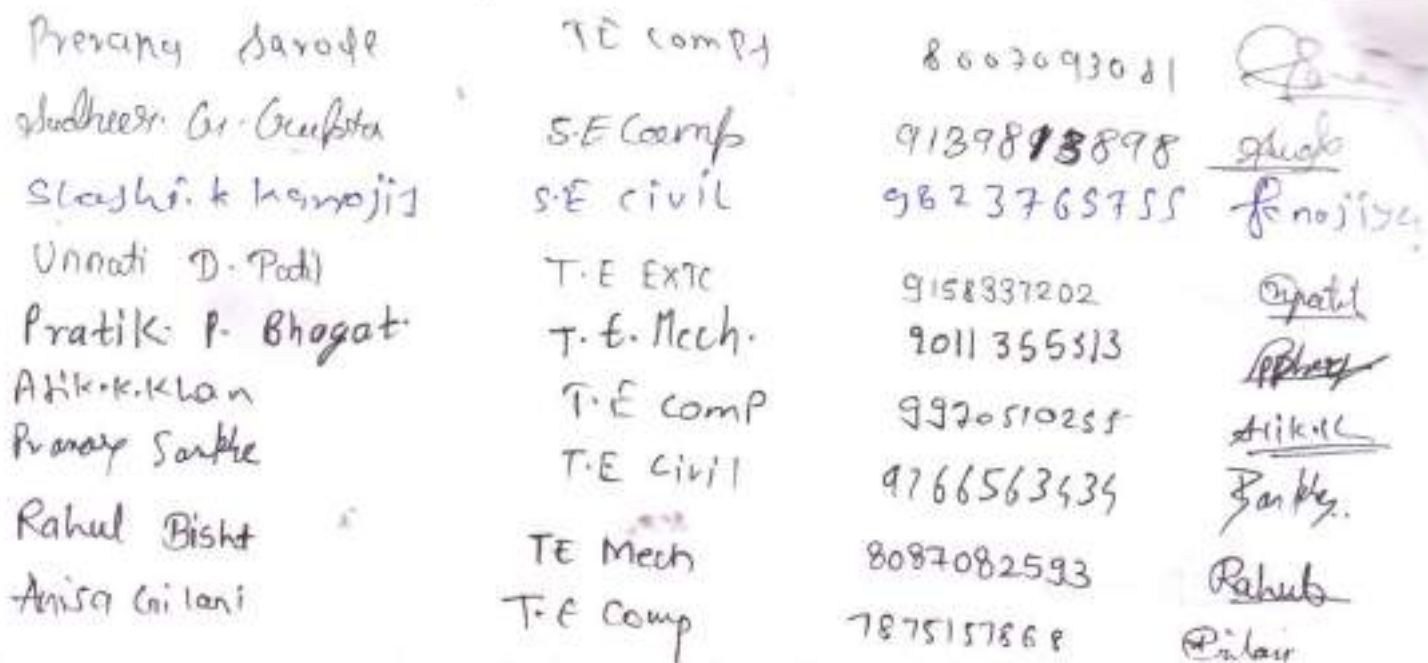 Prerana Sarode TE comps 8007093081
Sudheer. G. Gupta S.E Comp 9139813898
Shashi. k kanojia S.E civil 9823765755 kanojiya
Unnati D. Patil T.E EXTC 9158337202 Upatil
Pratik. P. Bhagat. T.E. Mech. 9011355513
Atik.K.Khan T.E comp 9970510255 Atik.K
Pranay Sarkhe T.E Civil 9766563434
Rahul Bisht TE Mech 8087082593 Rahulb
Anisa Gilani T.E Comp 7875157868